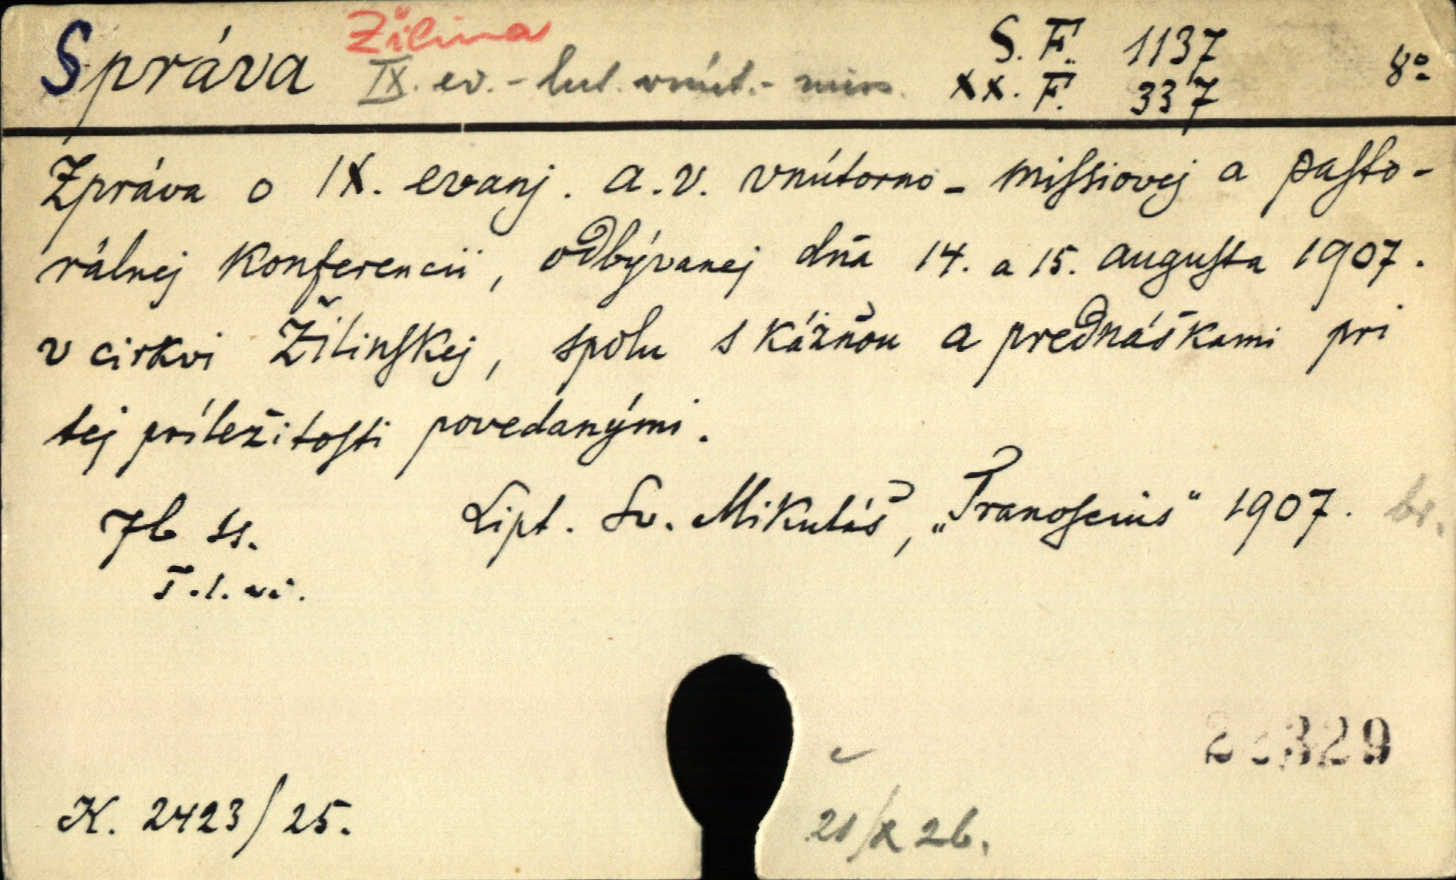 Správa Žilina S. F. 1137 8°
IX. ev. - lut. vnút. - miss. XX. F. 337
Zpráva o IX. evanj. a. v. vnútorno - missiovej a pasto-
rálnej konferencii, odbývanej dňa 14. a 15. augusta 1907.
v cirkvi Žilinskej, spolu s kážňou a prednáškami pri
tej príležitosti povedanými.
Lipt. Sv. Mikuláš, „Tranoscius" 1907. br.
76 ss.
K. 2423/25.